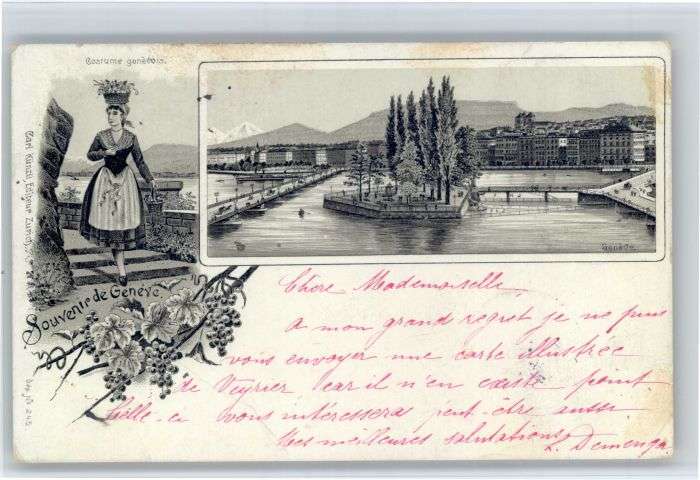 Costume genevois.
Carl Künzli, Editeur Zurich
Dep. No. 245
Souvenir de Genève.
Genève
Chère Mademoiselle,
A mon grand regret je ne puis
vous envoyer une carte illustrée
de Veyrier car il n'en existe point.
Celle-ci vous intéressera peut-être aussi.
Mes meilleures salutations
L. Demenga.